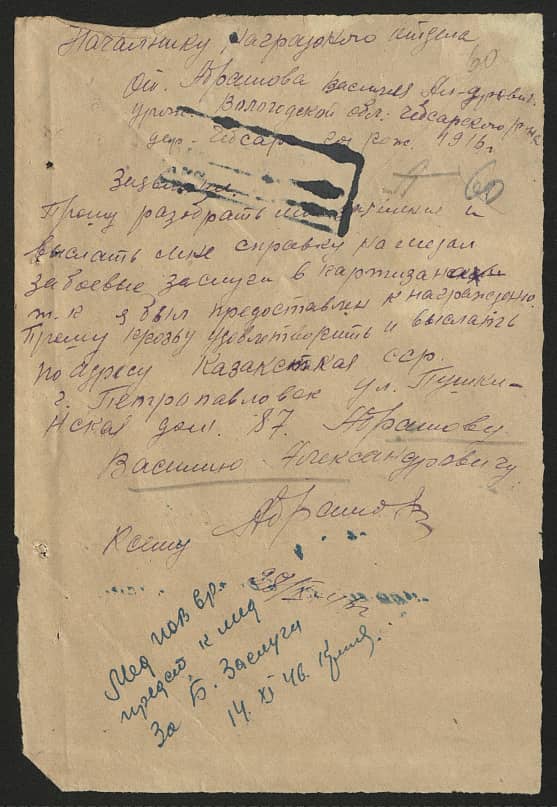 Начальнику наградского отдела
60
От. Абрашова Василия Ал-дрович.
урож. Вологодской обл. Чебсарского р-на
дер. Чебсар 1916 г.
60
Прошу разобрать и
выслать мне справку на медал
за боевые заслуги в картизан
т.к я был предоставлен к награждению.
Прошу прозву удовлетворить и выслать
по адресу Казакская сср.
г. Петропавловск ул. Пушки-
нская дом. 87. Абрашову
Василию Александровичу.
Абрашов
К сему
Мед пов вр.
предст к мед
За Б. Заслуги
14. XI 46.